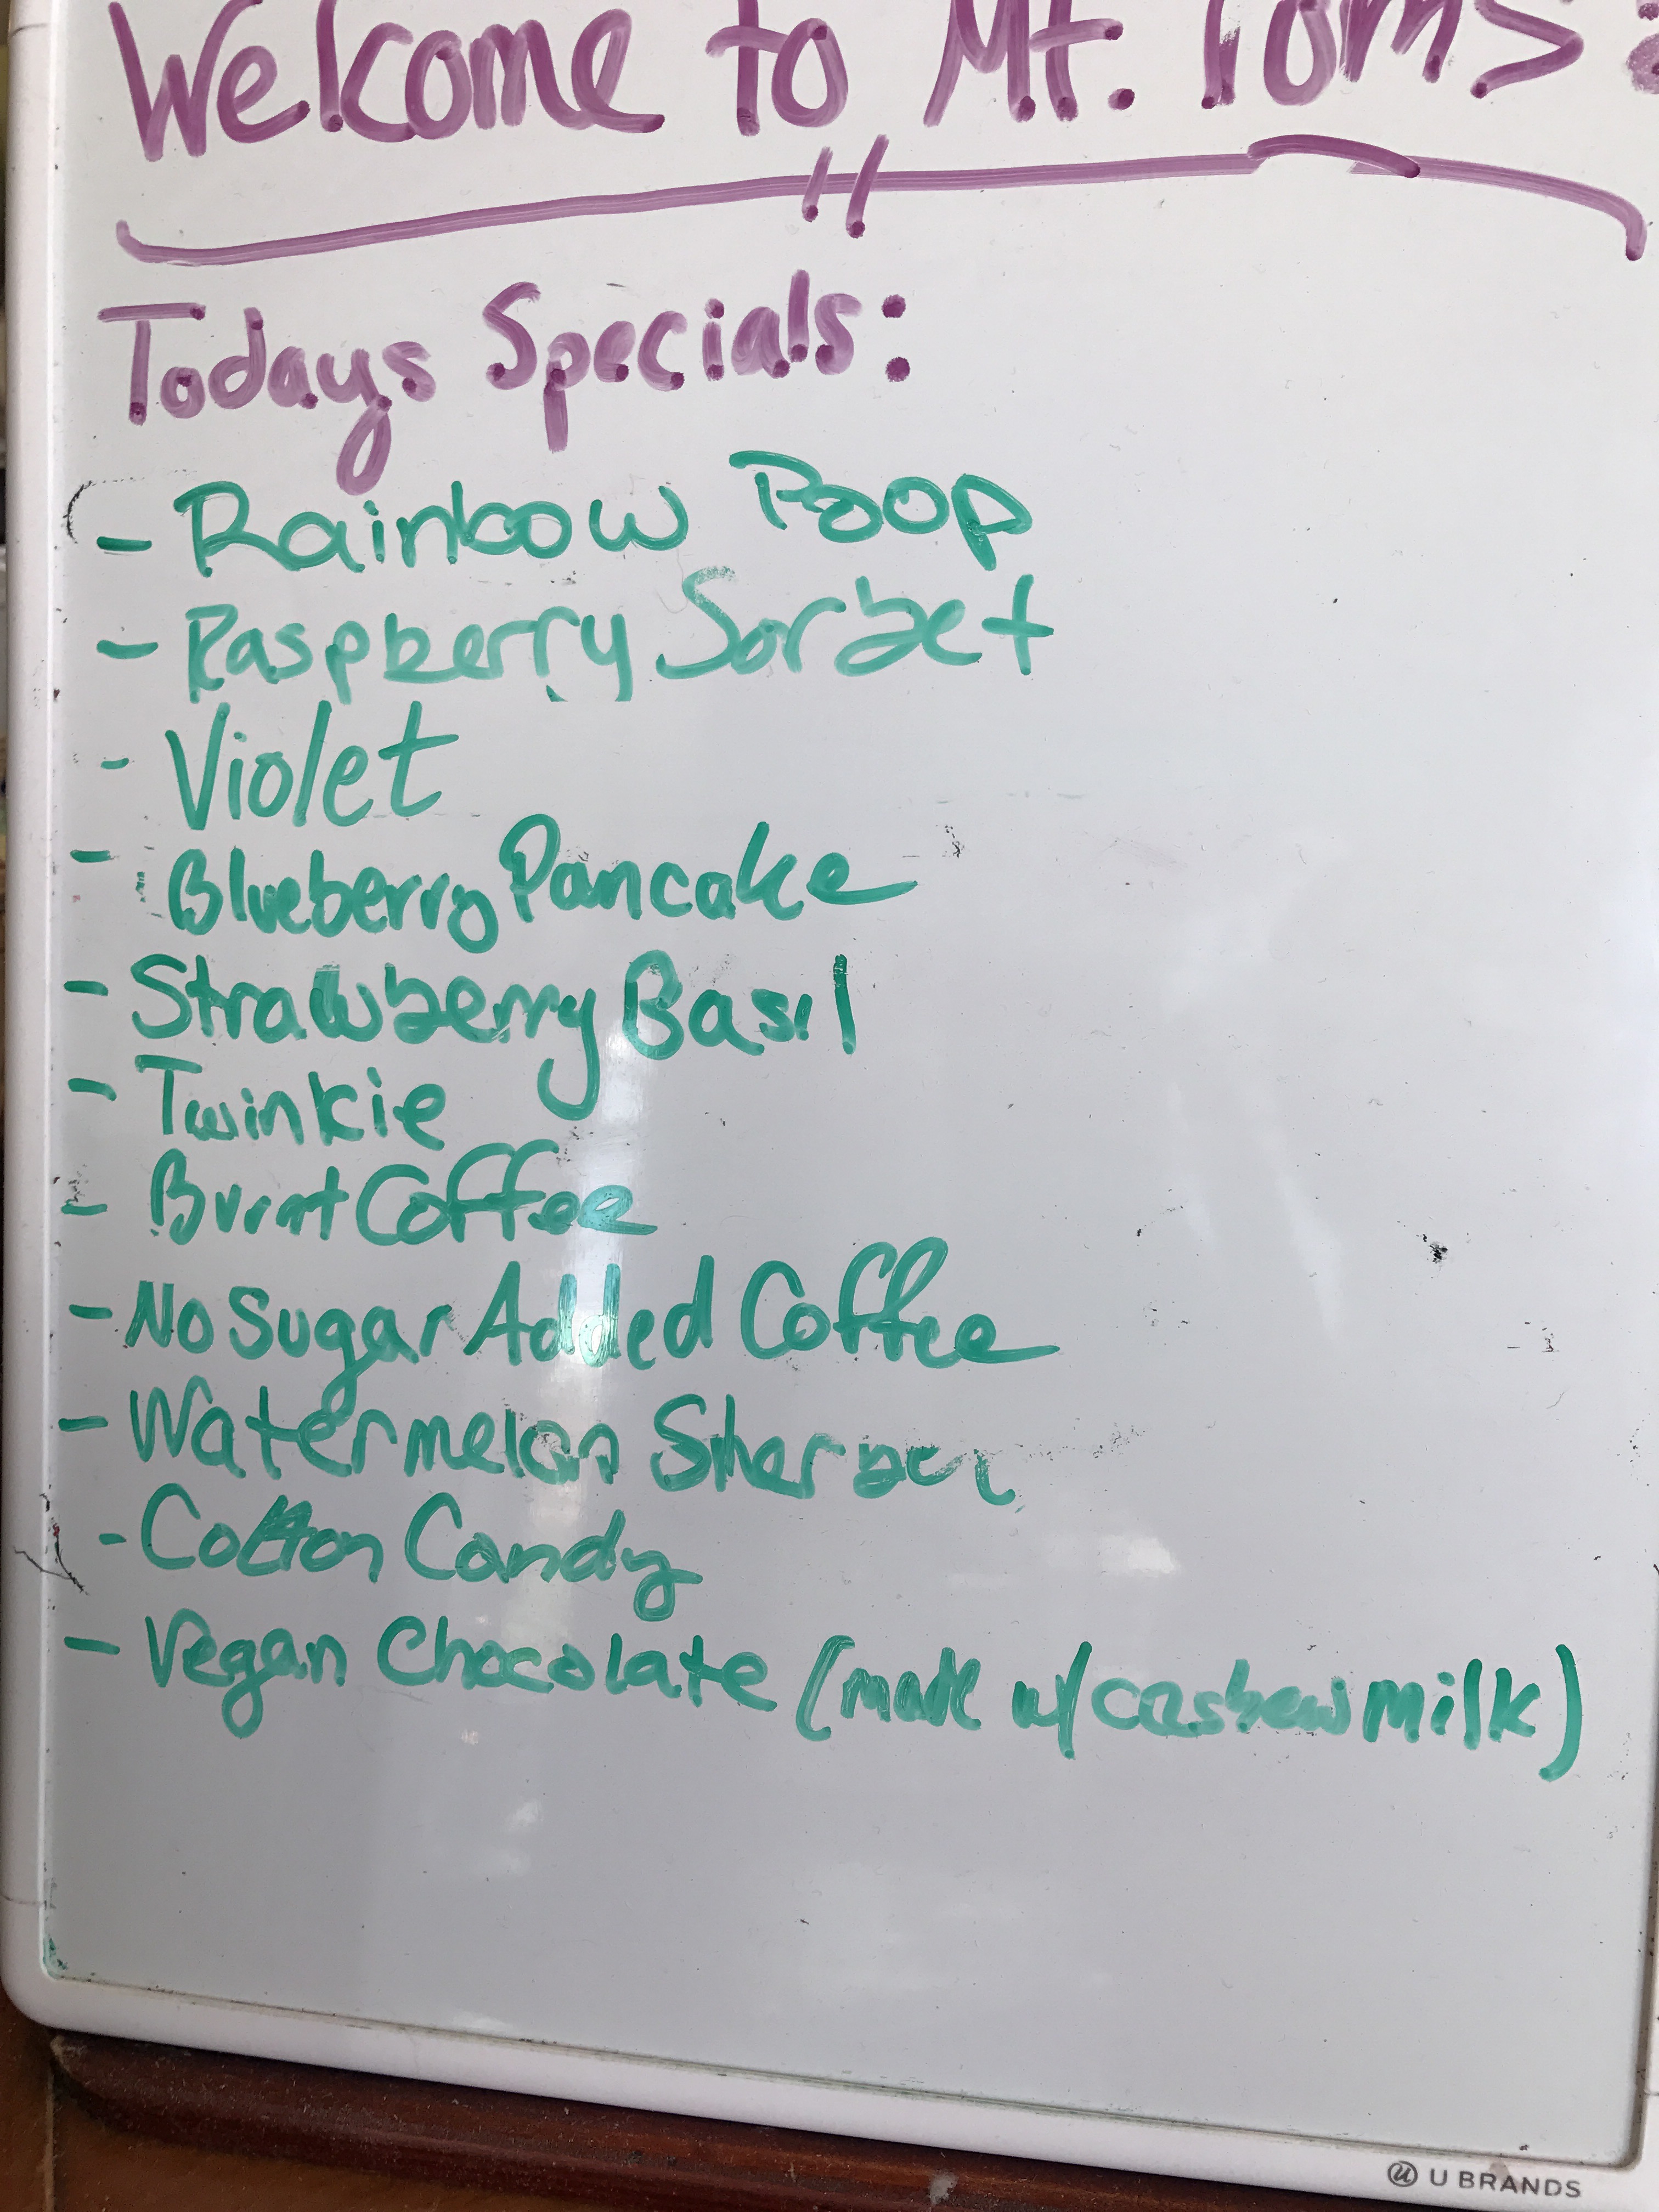 Welcome to Mt. Toms!
Todays Specials:
- Rainbow Poop
- Raspberry Sorbet
- Violet
- Blueberry Pancake
- Strawberry Basil
- Twinkie
- Burnt Coffee
- No Sugar Added Coffee
- Watermelon Sherbet
- Cotton Candy
- Vegan Chocolate (made w/ cashew milk)
U BRANDS